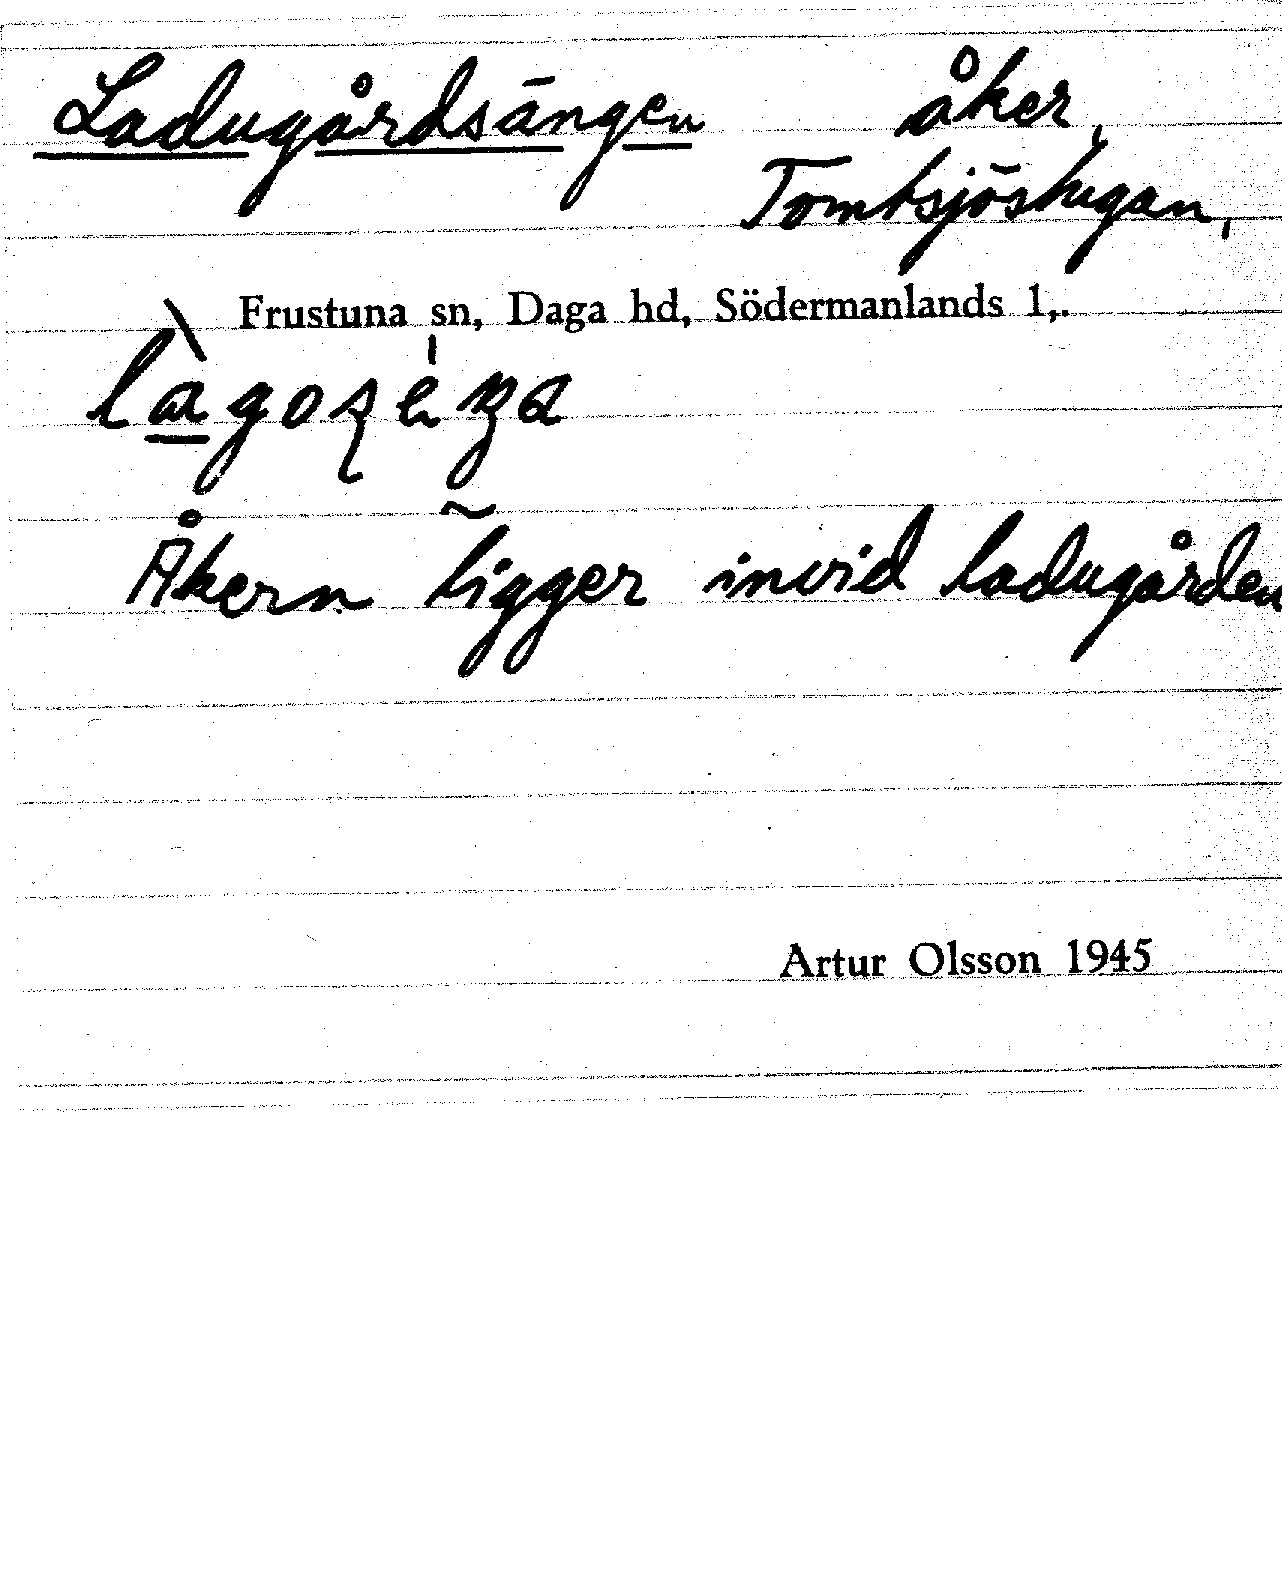 Ladugårdsängen åker,
Tomtsjöstugan,
Frustuna sn, Daga hd, Södermanlands l,.
Åkern ligger invid ladugården
Artur Olsson 1945